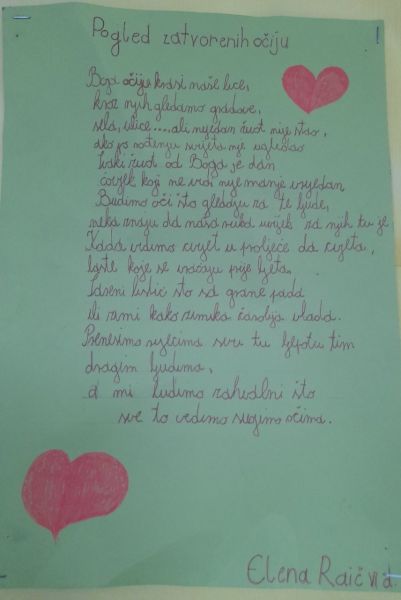 Pogled zatvorenih očiju
Boja očiju krasi naše lice,
kroz njih gledamo gradove,
sela, ulice...., ali nijedan život nije stao,
ako po rođenju svijeta nije ugledao
Svaki život od Boga je dan
čovjek koji ne vidi nije manje vrijedan
Budimo oči što gledaju za te ljude,
neka znaju da naša ruka uvijek za njih tu je
Kada vidimo cvijet u proljeće da cvjeta,
laste koje se vraćaju prije ljeta,
Jeseni listić što sa grane pada
ili zimi kako zimska čarolija vlada.
Prenesimo riječima svu tu ljepotu tim
dragim ljudima,
a mi budimo zahvalni što
sve to vidimo svojim očima.
Elena Raič VI d.